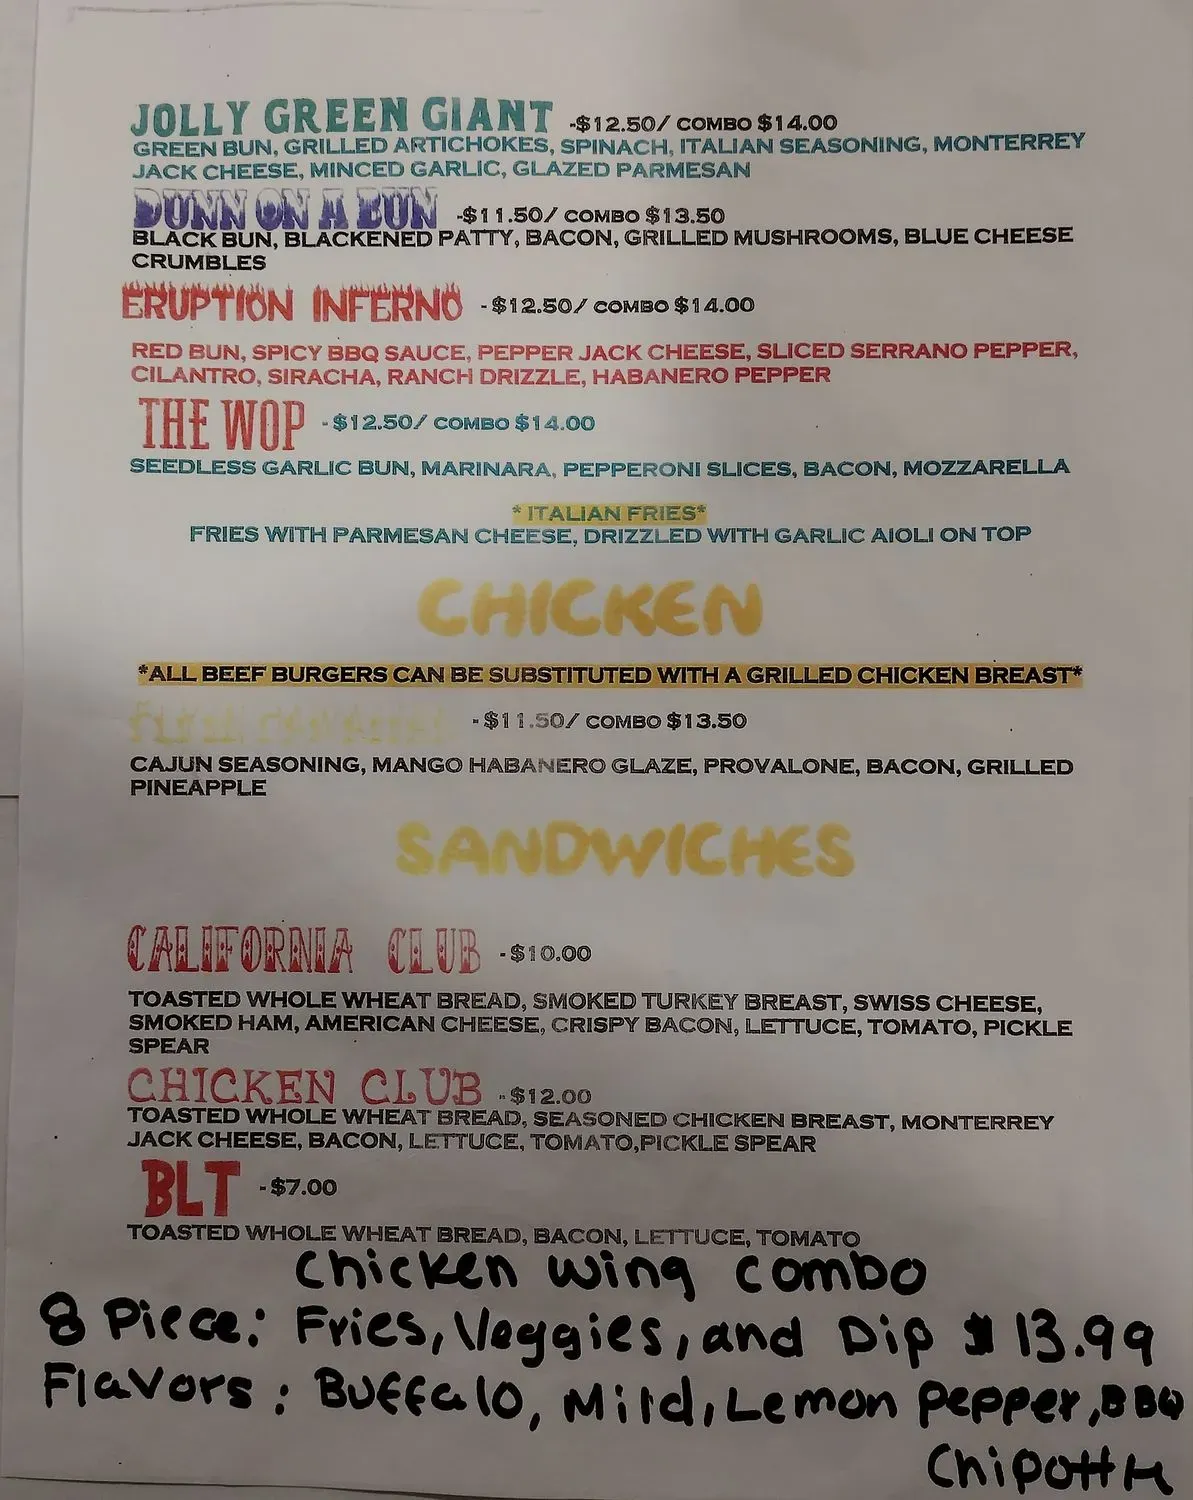 JOLLY GREEN GIANT -$12.50/ COMBO $14.00
GREEN BUN, GRILLED ARTICHOKES, SPINACH, ITALIAN SEASONING, MONTERREY
JACK CHEESE, MINCED GARLIC, GLAZED PARMESAN
DUNN ON A BUN -$11.50/ COMBO $13.50
BLACK BUN, BLACKENED PATTY, BACON, GRILLED MUSHROOMS, BLUE CHEESE
CRUMBLES
ERUPTION INFERNO -$12.50/ COMBO $14.00
RED BUN, SPICY BBQ SAUCE, PEPPER JACK CHEESE, SLICED SERRANO PEPPER,
CILANTRO, SIRACHA, RANCH DRIZZLE, HABANERO PEPPER
THE WOP -$12.50/ COMBO $14.00
SEEDLESS GARLIC BUN, MARINARA, PEPPERONI SLICES, BACON, MOZZARELLA
*ITALIAN FRIES*
FRIES WITH PARMESAN CHEESE, DRIZZLED WITH GARLIC AIOLI ON TOP
CHICKEN
*ALL BEEF BURGERS CAN BE SUBSTITUTED WITH A GRILLED CHICKEN BREAST*
-$11.50/ COMBO $13.50
CAJUN SEASONING, MANGO HABANERO GLAZE, PROVALONE, BACON, GRILLED
PINEAPPLE
SANDWICHES
CALIFORNIA CLUB -$10.00
TOASTED WHOLE WHEAT BREAD, SMOKED TURKEY BREAST, SWISS CHEESE,
SMOKED HAM, AMERICAN CHEESE, CRISPY BACON, LETTUCE, TOMATO, PICKLE
SPEAR
CHICKEN CLUB -$12.00
TOASTED WHOLE WHEAT BREAD, SEASONED CHICKEN BREAST, MONTERREY
JACK CHEESE, BACON, LETTUCE, TOMATO,PICKLE SPEAR
BLT -$7.00
TOASTED WHOLE WHEAT BREAD, BACON, LETTUCE, TOMATO
Chicken wing combo
8 Piece: Fries, Veggies, and Dip $13.99
Flavors: Buffalo, Mild, Lemon Pepper, BBQ
Chipottle